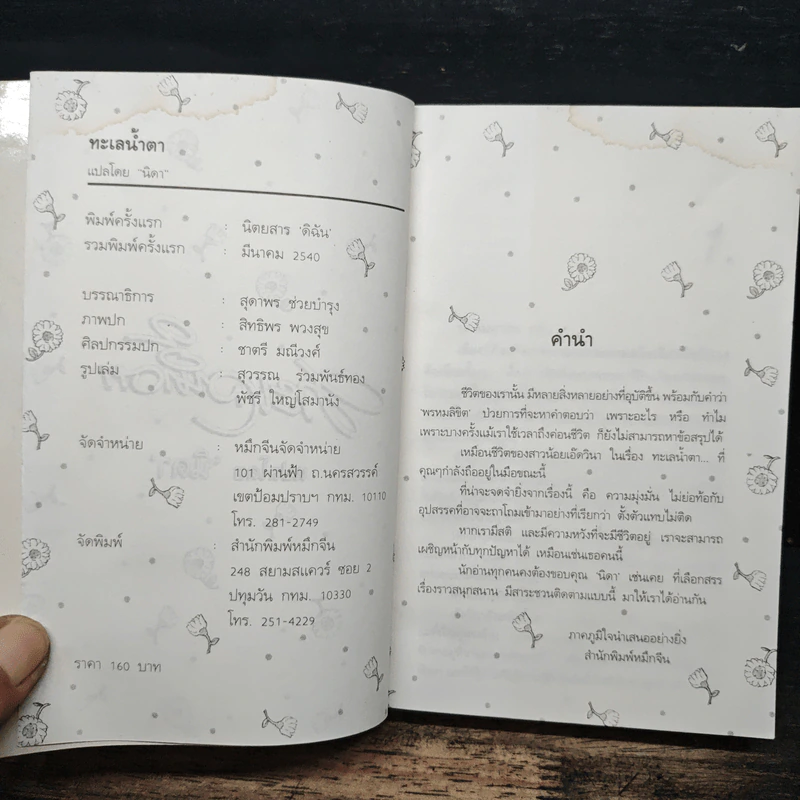 ทะเลน้ำตา
แปลโดย "นิดา"
พิมพ์ครั้งแรก : นิตยสาร 'ดิฉัน'
รวมพิมพ์ครั้งแรก : มีนาคม 2540
บรรณาธิการ : สุดาพร ช่วยบำรุง
ภาพปก : สิทธิพร พวงสุข
ศิลปกรรมปก : ชาตรี มณีวงศ์
รูปเล่ม : สุวรรณ ร่วมพันธ์ทอง
พัชรี ใหญ่โสมานัง
จัดจำหน่าย : หมึกจีนจัดจำหน่าย
101 ผ่านฟ้า ถ.นครสวรรค์
เขตป้อมปราบฯ กทม. 10110
โทร. 281-2749
จัดพิมพ์ : สำนักพิมพ์หมึกจีน
248 สยามสแควร์ ซอย 2
ปทุมวัน กทม. 10330
โทร. 251-4229
ราคา 160 บาท
คำนำ
ชีวิตของเรานั้น มีหลายสิ่งหลายอย่างที่อุบัติขึ้น พร้อมกับคำว่า
'พรหมลิขิต' ป่วยการที่จะหาคำตอบว่า เพราะอะไร หรือ ทำไม
เพราะบางครั้งแม้เราใช้เวลาถึงค่อนชีวิต ก็ยังไม่สามารถหาข้อสรุปได้
เหมือนชีวิตของสาวน้อยเอ็ดวินา ในเรื่อง ทะเลน้ำตา... ที่
คุณๆกำลังถืออยู่ในมือขณะนี้
ที่น่าจะจดจำยิ่งจากเรื่องนี้ คือ ความมุ่งมั่น ไม่ย่อท้อกับ
อุปสรรคที่อาจจะถาโถมเข้ามาอย่างที่เรียกว่า ตั้งตัวแทบไม่ติด
หากเรามีสติ และมีความหวังที่จะมีชีวิตอยู่ เราจะสามารถ
เผชิญหน้ากับทุกปัญหาได้ เหมือนเช่นเธอคนนี้
นักอ่านทุกคนคงต้องขอบคุณ 'นิดา' เช่นเคย ที่เลือกสรร
เรื่องราวสนุกสนาน มีสาระชวนติดตามแบบนี้ มาให้เราได้อ่านกัน
ภาคภูมิใจนำเสนออย่างยิ่ง
สำนักพิมพ์หมึกจีน